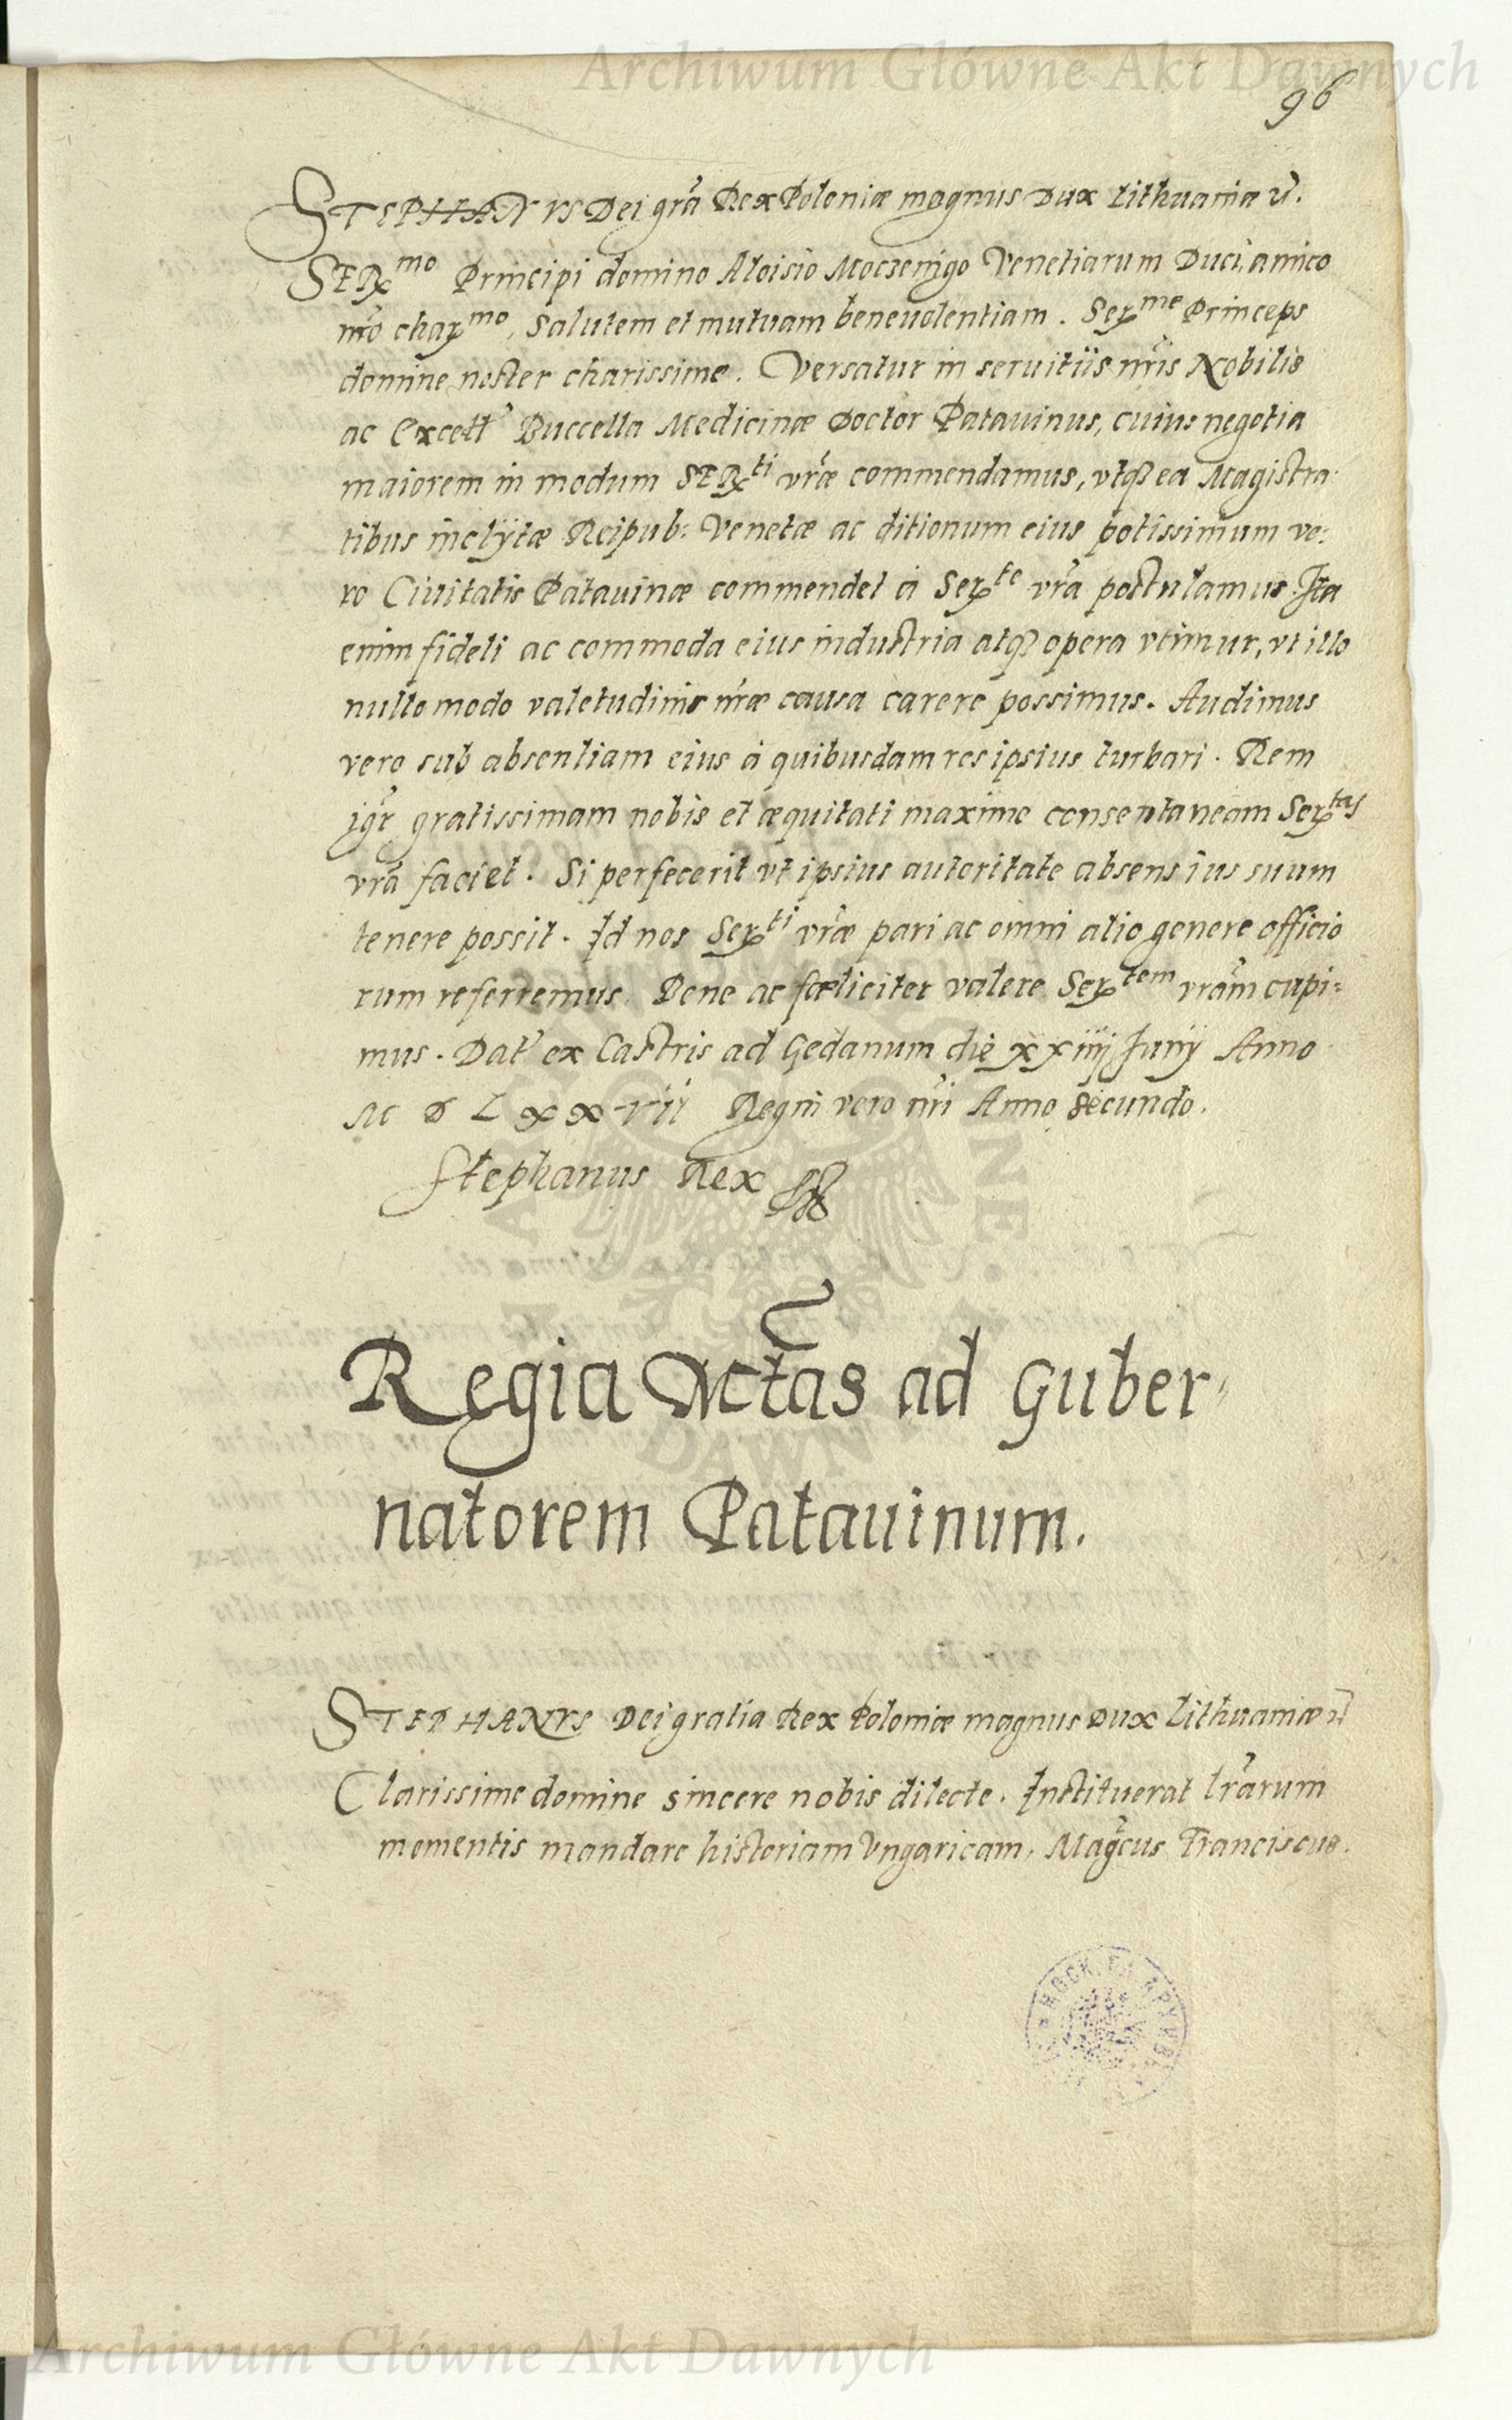 Archiwum Główne Akt Dawnych
96
STEPHANVS Dei grã Rex Poloniæ magnus Dux Lithuaniæ
SERmo Principi domino Aloisio Moczenigo Venetiarum Duci, amico
nrõ charmo, Salutem et mutuam beneuolentiam. Serme Princeps
domine noster charissime. Versatur in seruitiis nrĩs Nobilis
ac Excell Buccella Medicinæ Doctor Patauinus, cuius negotia
maiorem in modum SERti vræ commendamus, vtq₃ ea Magistra-
tibus inclÿtæ Reipub: Venetæ ac ditionum eius potissimum ve:
ro Ciuitatis Patauinæ commendet à Serte vrã postulamus. Ita
enim fideli ac commoda eius industria atq₃ opera vtimur, vt illo
nullo modo valetudinis nræ causa carere possimus. Audimus
vero sub absentiam eius à quibusdam res ipsius turbari. Rem
igr̃ gratissimam nobis et æquitati maxime consentaneam Sertas
vrã faciet. Si perfecerit vt ipsius autoritate absens ius suum
tenere possit. Id nos Serti vræ pari ac omni alio genere officio
rum referremus. Bene ac fœliciter valere Sertem vrãm cupi=
mus. Dat' ex Castris ad Gedanum die xxiiij Junij Anno
M D L x x vii Regni vero nrĩ Anno secundo.
Stephanus Rex
Regia Mtãs ad Guber-
natorem Patauinum.
STEPHANVS Dei gratia Rex Poloniæ magnus Dux Lithuaniæ
Clarissime domine sincere nobis dilecte. Instituerat lrãrum
momentis mandare historiam Vngaricam, Magcus Franciscus.
Archiwum Główne Akt Dawnych